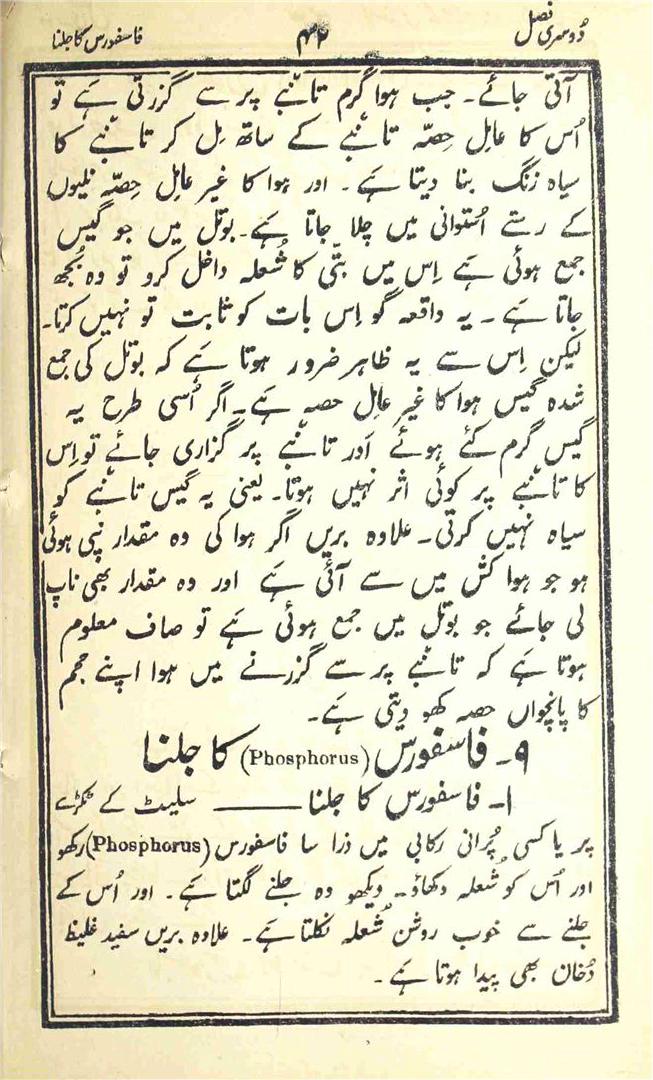 دُوسری فصل
۴۲
فاسفورس کا جلنا
آتی جائے۔ جب ہوا گرم تانبے پر سے گزرتی ہے تو
اُس کا عامِل حِصّہ تانبے کے ساتھ مِل کر تانبے کا
سیاہ زنگ بنا دیتا ہے۔ اور ہوا کا غیر عامِل حِصّہ نلیوں
کے رستے اُستوانی میں چلا جاتا ہے۔ بوتل میں جو گیس
جمع ہوئی ہے اِس میں بتّی کا شُعلہ داخل کرو تو وہ بُجھ
جاتا ہے۔ یہ واقعہ گو اِس بات کو ثابت تو نہیں کرتا۔
لیکن اِس سے یہ ظاہر ضرور ہوتا ہے کہ بوتل کی جمع
شدہ گیس ہوا کا غیر عامِل حصہ ہے۔ اگر اُسی طرح یہ
گیس گرم کئے ہوئے اَور تانبے پر گزاری جائے تو اِس
کا تانبے پر کوئی اثر نہیں ہوتا۔ یعنی یہ گیس تانبے کو
سیاہ نہیں کرتی۔ علاوہ بریں اگر ہوا کی وہ مقدار نپی ہوئی
ہو جو ہوا کش میں سے آئی ہے اور وہ مقدار بھی ناپ
لی جائے جو بوتل میں جمع ہوئی ہے تو صاف معلوم
ہوتا ہے کہ تانبے پر سے گزرنے میں ہوا اپنے حجم
کا پانچواں حصہ کھو دیتی ہے۔
۹۔ فاسفورس (Phosphorus) کا جلنا
۱۔ فاسفورس کا جلنا ——— سلیٹ کے ٹکڑے
پر یا کسی پُرانی رکابی میں ذرا سا فاسفورس (Phosphorus) رکھو
اور اُس کو شُعلہ دکھاؤ۔ دیکھو وہ جلنے لگتا ہے۔ اور اُس کے
جلنے سے خوب روشن شُعلہ نکلتا ہے۔ علاوہ بریں سفید غلیظ
دُخان بھی پیدا ہوتا ہے۔